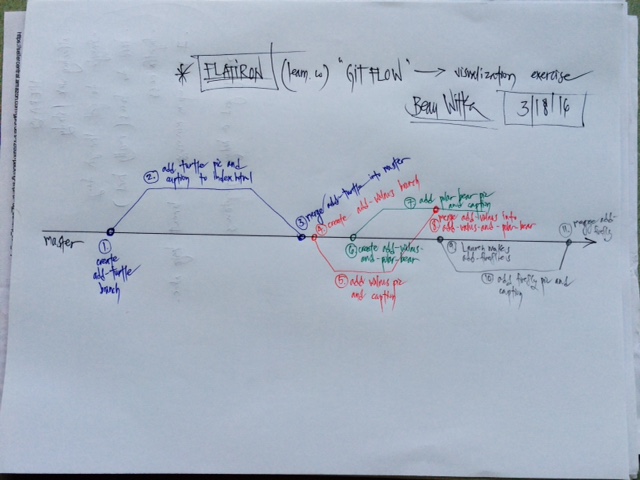 * FLATIRON (learn.co) "GIT FLOW" → visualization exercise
Beau Witka
3/18/16
master
1. create
add-turtle
branch
2. add turtle pic and
caption to index.html
3. merge add-turtle into master
4. create add-walrus branch
5. add walrus pic
and caption
6. create add-walrus-
and-polar-bear
7. add polar bear pic
and caption
8. merge add-walrus into
add-walrus-and-polar-bear
9.
10. add pic and
caption
11. merge add-